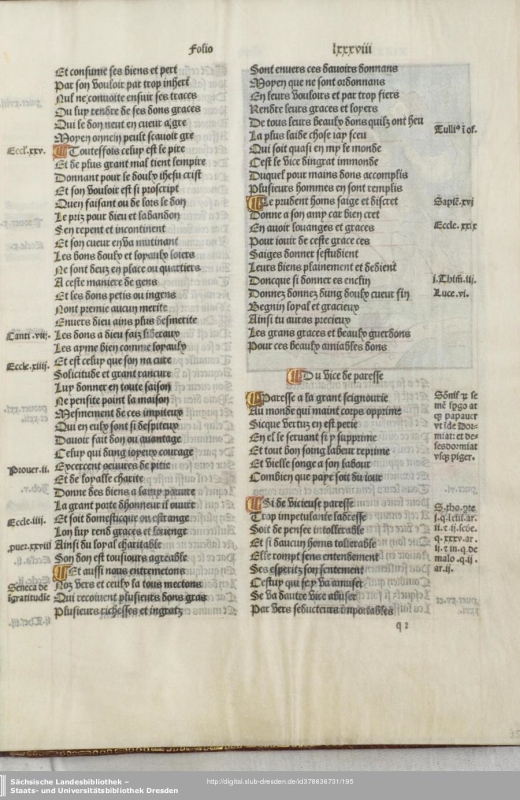 Folio lxxxviii
Et consume ses biens et pert
Par son vouloir par trop inhert
Nul ne conuoite ensuir ses traces
Ou luy rendre de ses dons graces
Qui le don neut en cueur aigre
Moyen onnein peult scauoir gre
Eccl. xxv.
Toutesfois celuy est le pire
Et de plus grant mal tient lempire
Donnant pour le douly ihesu crist
Et son vouloir est si proscript
Quen faisant ou de lors le don
Le priz pour dieu et labandon
Sen repent et incontinent
Et son cueur en va mutinant
Les dons douly et loyauly soiers
Ne sont deuz en place ou quartiers
A ceste maniere de gens
Et les dons petis ou ingens
Nont premie aucun merite
Enuers dieu ains plus desmerite
Canti .viij.
Les dons a dieu faiz liberauly
Les ayme bien comme loyauly
Eccle. xiiij.
Et est celuy que son na cure
Solicitude et grant rancure
Luy donner en toute saison
Ne pensite point la maison
Mesmement de ces impiteux
Qui en euly sont si despiteux
Dauoir fait don ou auantage
Celuy qui dung ioyeux courage
Prouer. ii.
Excercent oeuures de pitie
Et de loyalle charite
Donne des biens a lamy poure
La grant porte dhonneur il ouure
Eccle. iiij.
Et soit domesticque ou estrange
Lon luy rend graces et louenge
puer. xxviii
Ainsi du loyal charitable
Son don est tousiours agreable
Et aussi nous entremetons
Seneca de igratitudie
Noz vers et ceuly la tous mectons
Qui recoiuent plusieurs dons gras
Plusieurs richesses et ingratz
Sont enuers ces dauoirs donnans
Moyen que ne sont ordonnans
En leurs vouloirs et par trop fiers
Rendre leurs graces et loyers
De tous leurs beauly dons quilz ont heu
Tulli9 i of.
La plus laide chose iay sceu
Qui soit quasi en my le monde
Cest le vice dingrat immonde
Duquel pour mains dons accomplis
Plusieurs hommes en sont remplis
Sapie. xvj
Le prudent homs saige et discret
Donne a son amy car bien cret
Eccle. xxix
En auoir louanges et graces
Pour iouir de ceste grace ces
Saiges donner sestudient
Leurs biens plainement et dedient
i. Thim. iij.
Doncque si donner es enclin
Luce. vi.
Donnez donnez dung douly cueur fin
Begnin loyal et gracieux
Ainsi tu auras precieux
Les grans graces et beauly guerdons
Pour ces beauly amiables dons
Du vice de paresse
Paresse a sa grant seignourie
Au monde qui maint corps opprime
Sicque vertuz en est perie
En el le seruant si y supprime
Et tout bon soing labeur reprime
Et vielle songe a son labour
Combien que paye soit du iour
Si de vicieuse paresse
Trop impetulante ladresse
Soit de penser intollerable
Et si daucun homs tollerable
Elle rompt sens entendement
Ses esperitz son sentement
Celuy qui se y va amuser
Se va dautre vice abuser
Par vers seducteurs importables
q i
Sächsische Landesbibliothek –
Staats- und Universitätsbibliothek Dresden
http://digital.slub-dresden.de/id379636731/195